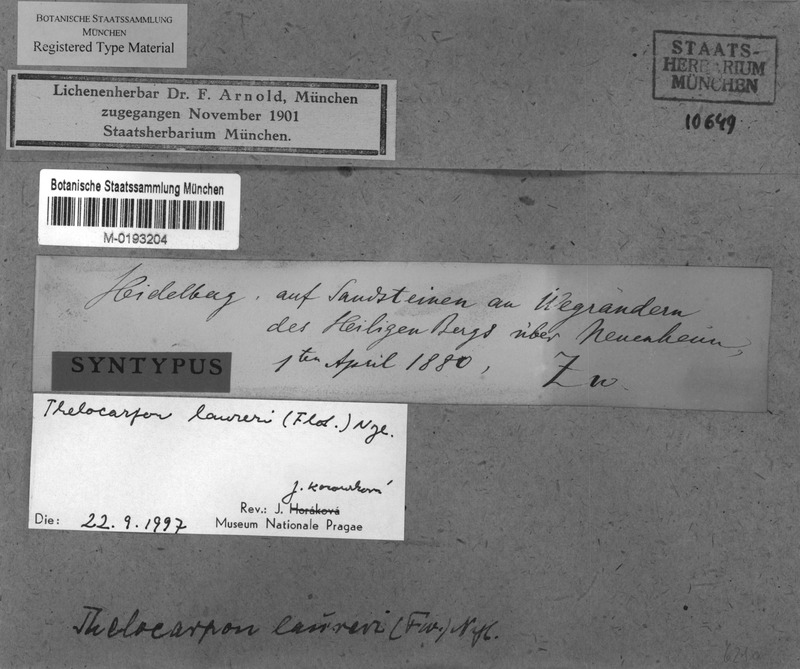 BOTANISCHE STAATSSAMMLUNG
MÜNCHEN
Registered Type Material
STAATS-
HERBARIUM
MÜNCHEN
10649
Lichenenherbar Dr. F. Arnold, München
zugegangen November 1901
Staatsherbarium München.
Botanische Staatssammlung München
M-0193204
Heidelberg, auf Sandsteinen an Wegrändern
des Heiligen Bergs über Neuenheim,
1ten April 1880, Zw.
SYNTYPUS
Thelocarpon laureri (Flot.) Nyl.
Rev.: J. Horáková
Die: 22.9.1997 Museum Nationale Pragae
Thelocarpon laureri (Fw.) Nyl.